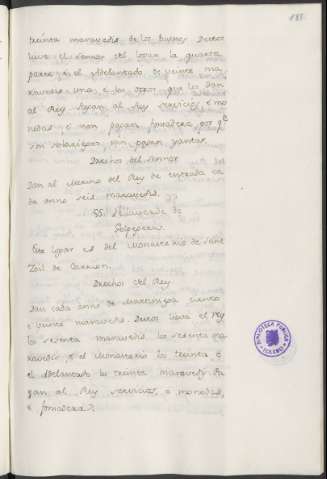 188
treinta maravedis de los buenos. Destos
lieva el Sennor del logar la quarta
parte, e el Adelantado de veinte ma
ravedis uno, e los otros que los dan
al Rey. Pagan al Rey servicios, e mo
nedas, e non pagan fonsadera, por qe.
son solariegos, nin pagan yantar.
Derechos del Sennor
Dan al Merino del Rey de entrada ca
da anno seis maravedis.
de
Este logar es del Monasterio de Sant
Zoil de Carrion.
Derechos del Rey
Dan cada anno de Marciniega ciento
e veinte maravedis. Destos lieva el Rey
los sesenta maravedis, los sesenta ma
ravedis, e el Monasterio los treinta e
el Adelantado los treinta maravedis. Pa
gan al Rey servicios, e monedas,
e fonsadera.
BIBLIOTECA PUBLICA
TOLEDO